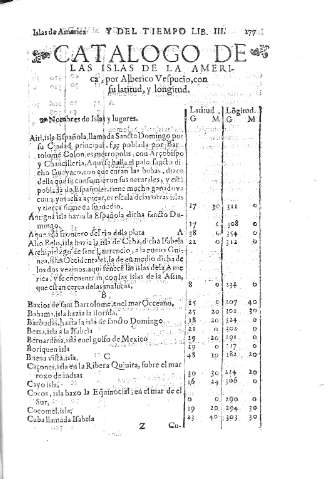 Islas de America Y DEL TIEMPO LIB. III. 177
CATALOGO DE
LAS ISLAS DE LA AMERI-
ca, por Alberico Vespucio, con
su latitud, y longitud.
Latitud. Lõgitud.
Nombres de Islas y lugares. G M G M
Aiti, isla Española, llamada Sancto Domingo por
su Ciudad principal, fue poblada por Bar-
tolome Colon, es metropolis, con Arçobispo
y Chancilleria, Aqui se halla el palo sancto di-
cho Guayaco, con que curan las bubas,
della que la consumieron sus naturales, y está
poblada de Españoles, tiene mucho ganado va
cuno, y es la escala de otras islas
17 30 311 0
Antigua isla hazia la Española dicha sancto Do-
mingo. 17 308 0
del rio dela plata A 38 354 0
Alto Velo, isla hazia la isla de Cuba, dicha Isabela 21 0 312 0
Archipielago de sant Laurencio,
islas Occidentales, isla de en medio dicha de
los dos vezinos, aqui fenecen las islas dela Ame
rica, y se comiençan con las Islas de la Asia,
que estan cerca delas malucas. 8 0 0
B
Baxios de sant Bartolome, en el mar Occeano, 307 40
Bahama, isla hazia la florida, 25 20 301 30
Barbudas, hasta la isla de Sancto Domingo 18 20 324 0
Bemi, isla a la Isabela 21 0 302 0
Bernardina, isla enel golfo de Mexico 29 20 291 0
Boriquen isla 19 0 317 0
Buena vista, isla, C 48 19 182 20
Caçones, isla en la Ribera Quiuira, sobre el mar
roxo de indias 30 30 214 20
Cayo isla, 16 24 306 0
Cocos, isla baxo la Equinocial, en el mar de el
Sur, 0 0 290 0
Cocomel, isla, 19 20 294 30
Cuba llamada Isabela 23 40 303 30
Z Cu-